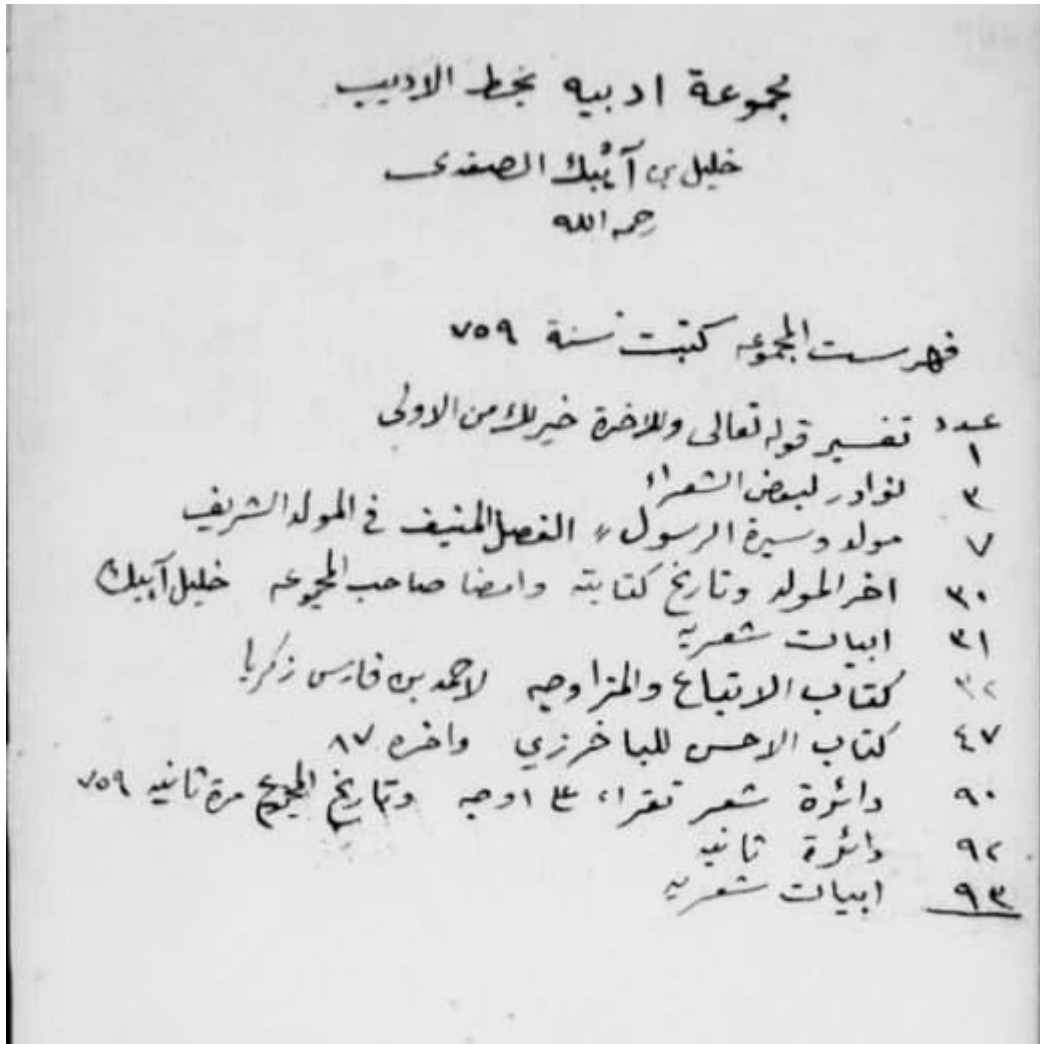 مجموعة ادبيه بخط الاديب
خليل بن آيْبك الصفدى
رحمه الله
فهرست المجموعه كتبت سنة ٧٥٩
عدد
١ تفسير قوله تعالى وللاخرة خير لك من الاولى
٣ نوادر لبعض الشعراء
٧ مولد وسيرة الرسول " الفصل المنيف في المولد الشريف
٣٠ اخر المولد وتاريخ كتابته وامضا صاحب المجموعه خليل آيبك
٣١ ابيات شعريه
٣٢ كتاب الاتباع والمزاوجه لاحمد بن فارس زكريا
٤٧ كتاب الاحسن للباخرزي واخره ٨٧
٩٠ دائرة شعر تقراء ٣ اوجه وتاريخ المجموع مرة ثانيه ٧٥٩
٩٢ دائرة ثانيه
٩٣ ابيات شعريه